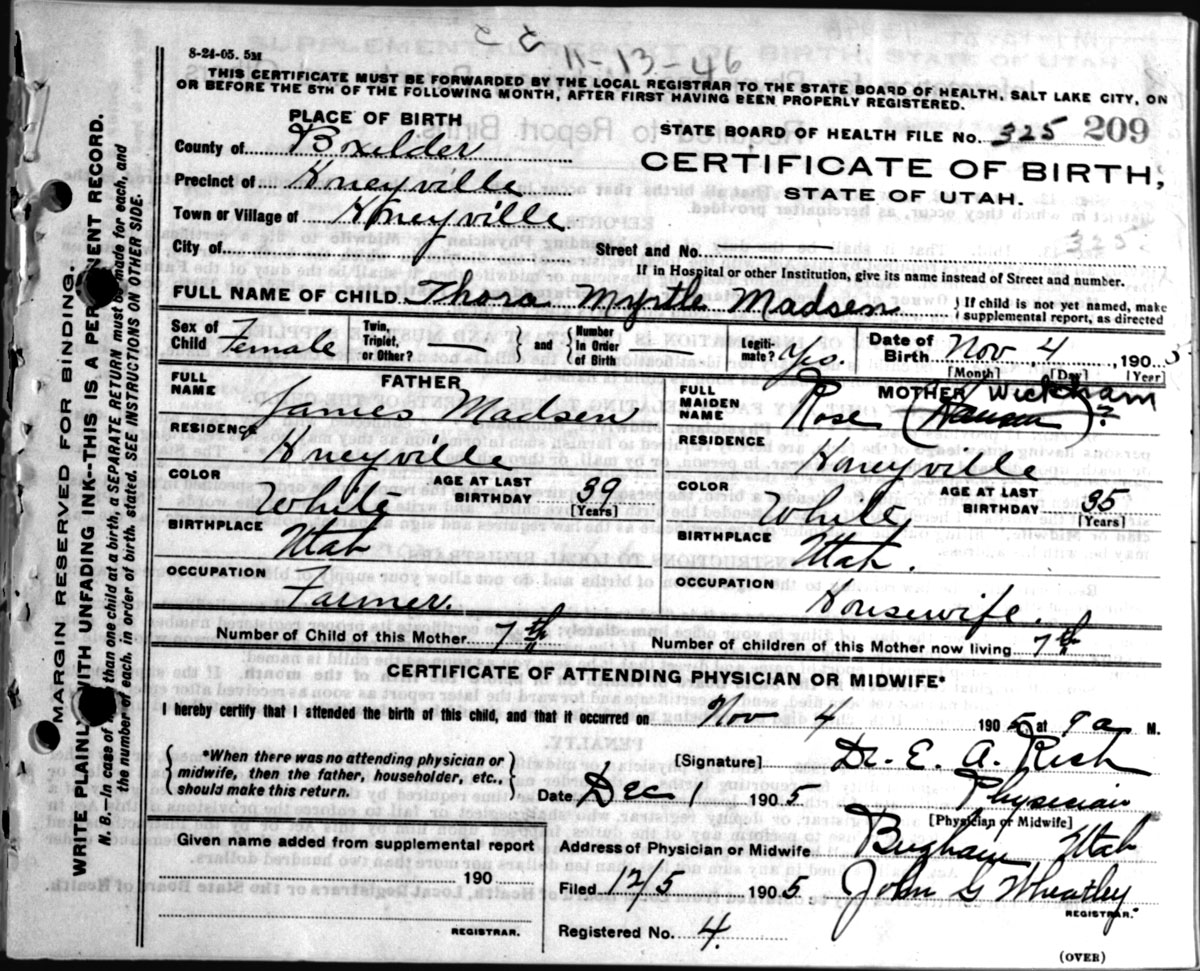 8-24-05. 5M
11-13-46
THIS CERTIFICATE MUST BE FORWARDED BY THE LOCAL REGISTRAR TO THE STATE BOARD OF HEALTH, SALT LAKE CITY, ON
OR BEFORE THE 5TH OF THE FOLLOWING MONTH, AFTER FIRST HAVING BEEN PROPERLY REGISTERED.
PLACE OF BIRTH
STATE BOARD OF HEALTH FILE No. 325 209
County of Boxelder
CERTIFICATE OF BIRTH,
Precinct of Honeyville
STATE OF UTAH.
Town or Village of Honeyville
325
City of
Street and No.
If in Hospital or other Institution, give its name instead of Street and number.
FULL NAME OF CHILD Thora Myrtle Madsen } If child is not yet named, make supplemental report, as directed
Sex of Child Female
Twin, Triplet, or Other? } and { Number in Order of Birth
Legitimate? Yes.
Date of Birth Nov 4, 1905
[Month] [Day] [Year]
FATHER
FULL NAME James Madsen
MOTHER Wickham
FULL MAIDEN NAME Rose (Hansen) ?
RESIDENCE Honeyville
RESIDENCE Honeyville
COLOR White AGE AT LAST BIRTHDAY 39 [Years]
COLOR White AGE AT LAST BIRTHDAY 35 [Years]
BIRTHPLACE Utah
BIRTHPLACE Utah.
OCCUPATION Farmer.
OCCUPATION Housewife.
Number of Child of this Mother 7th
Number of children of this Mother now living 7th
CERTIFICATE OF ATTENDING PHYSICIAN OR MIDWIFE*
I hereby certify that I attended the birth of this child, and that it occurred on Nov 4 1905 at 9 a M.
{ *When there was no attending physician or midwife, then the father, householder, etc., should make this return. }
[Signature] Dr. E. A. Rich
Date Dec 1 1905 Physician
[Physician or Midwife]
Given name added from supplemental report
Address of Physician or Midwife Brigham, Utah
190
Filed 12/5 1905. John G Wheatley
REGISTRAR.
REGISTRAR.
Registered No. 4.
(OVER)
MARGIN RESERVED FOR BINDING.
WRITE PLAINLY WITH UNFADING INK--THIS IS A PERMANENT RECORD.
N. B.--In case of than one child at birth, a SEPARATE RETURN must be made for each, and
the number of each, in order of birth, stated. SEE INSTRUCTIONS ON OTHER SIDE.